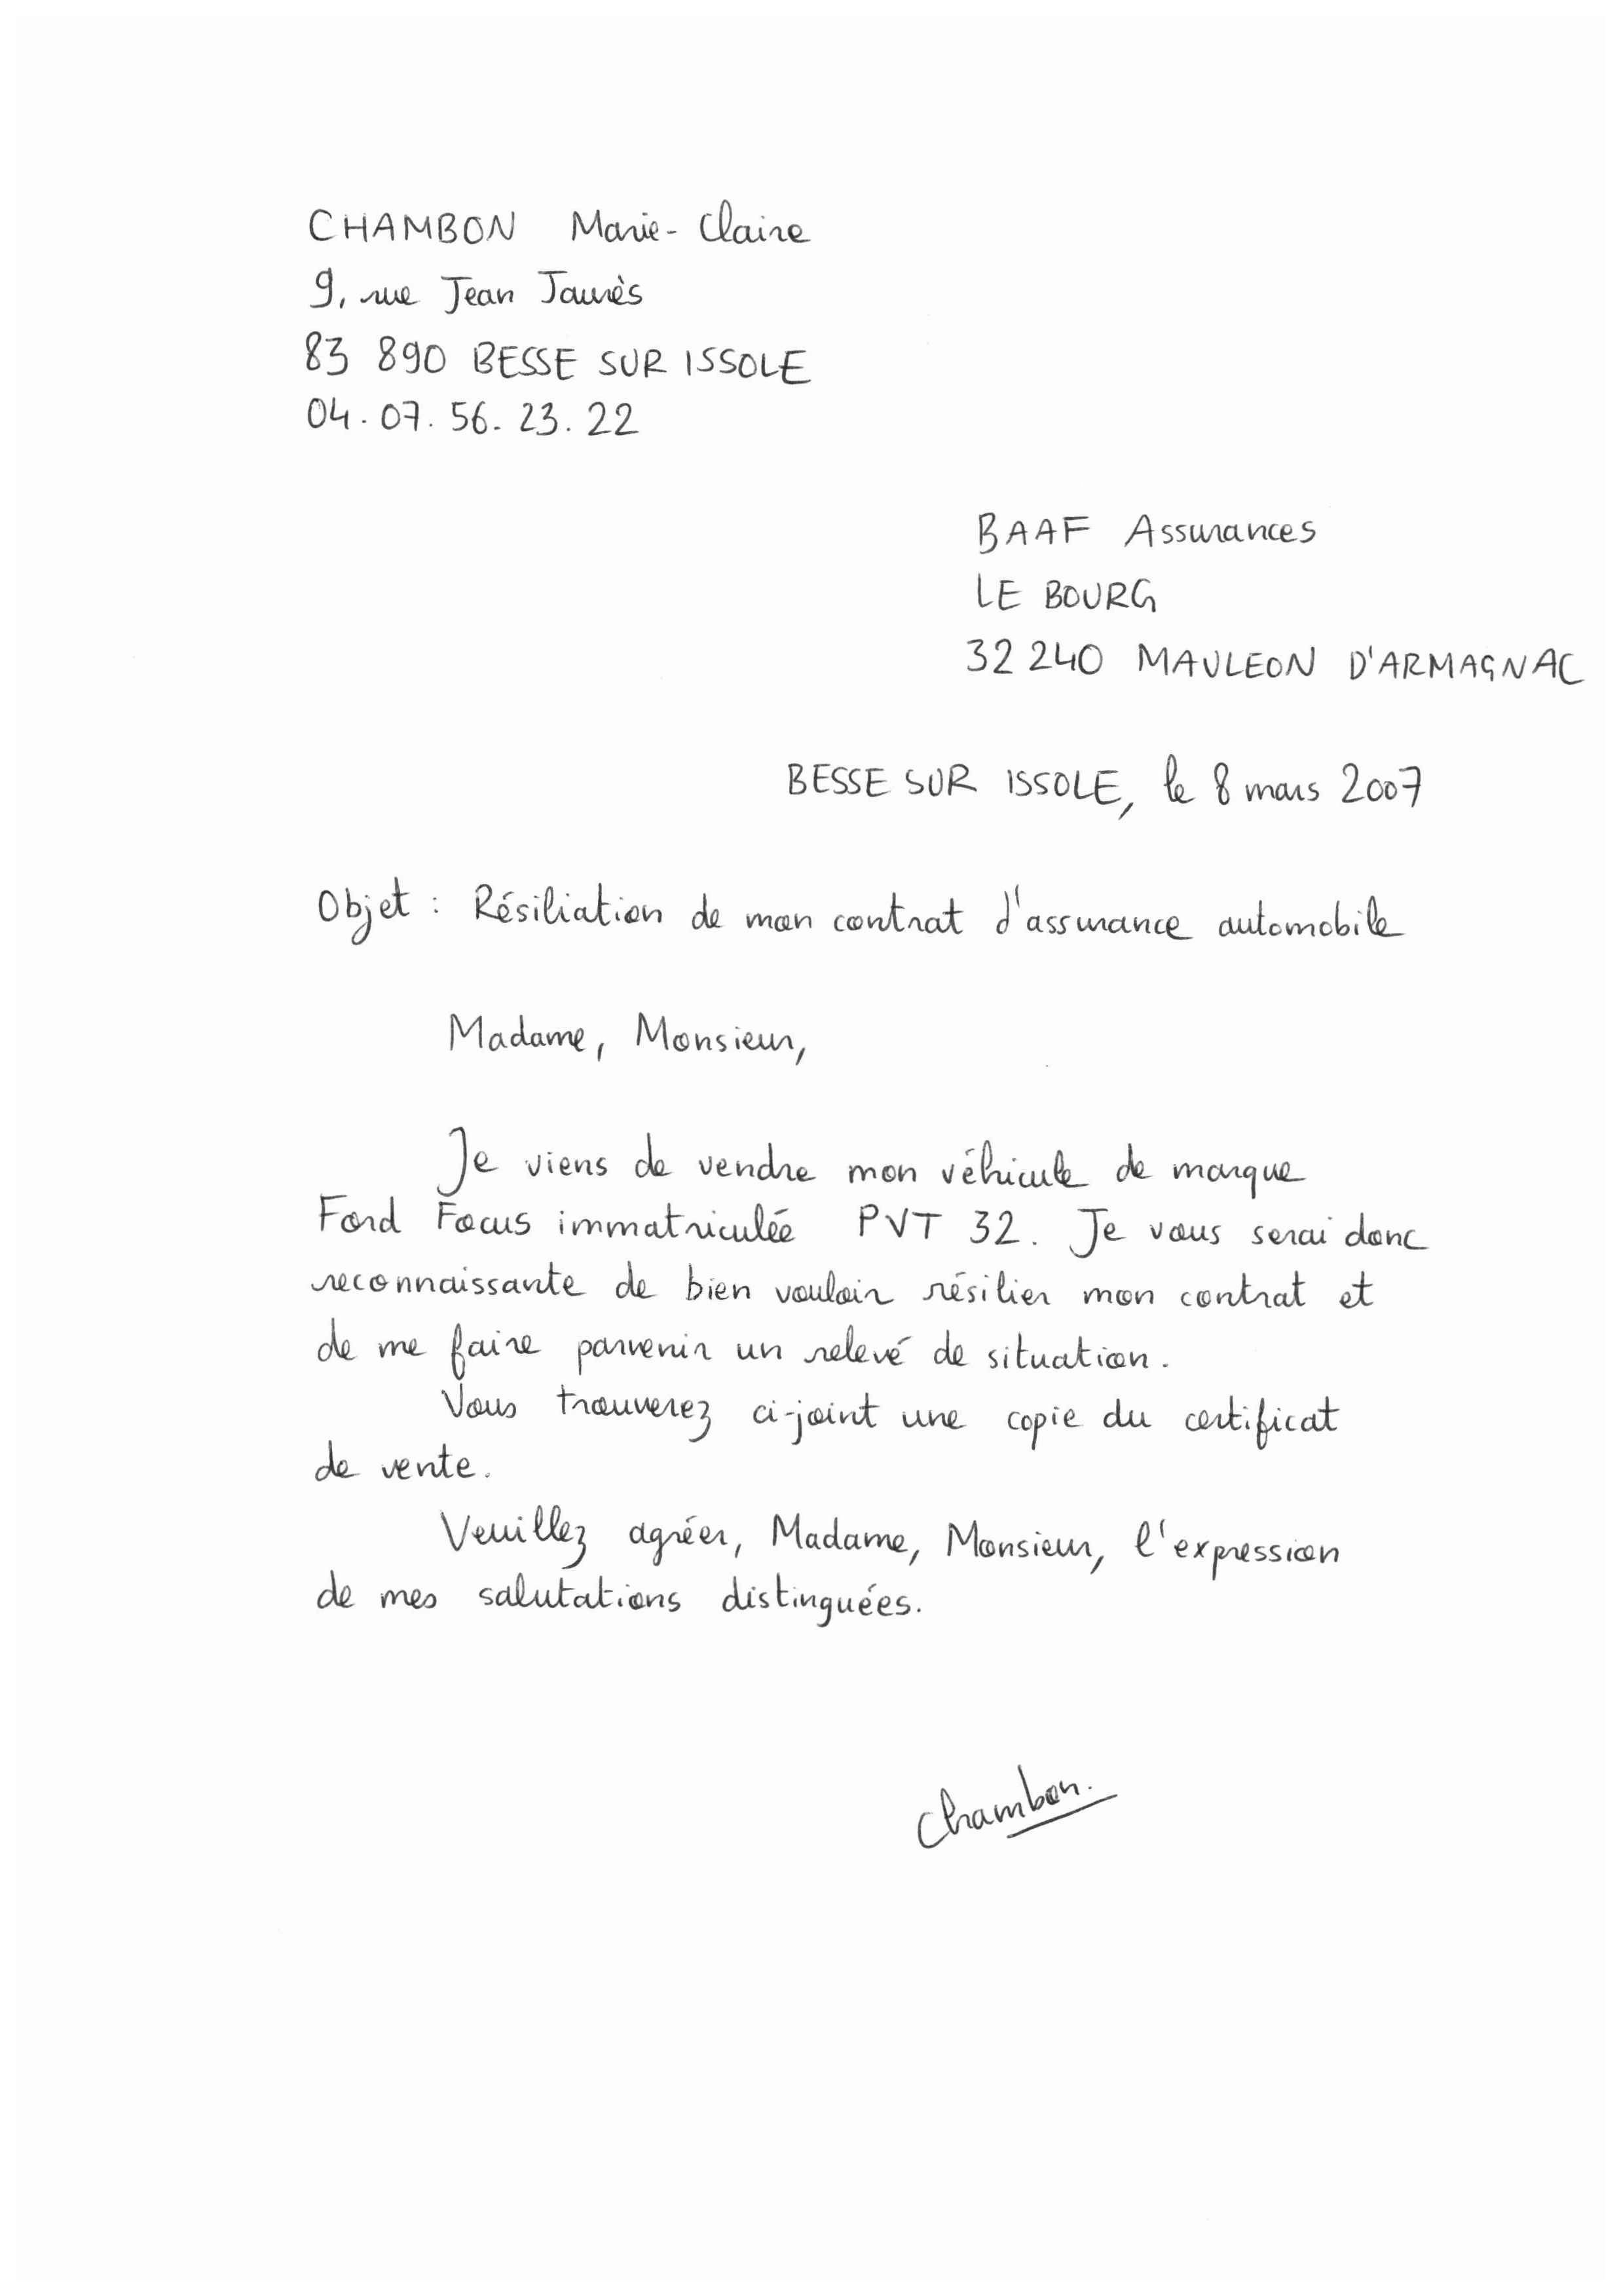 CHAMBON Marie-Claire
9, rue Jean Jaurès
83 890 BESSE SUR ISSOLE
04.07.56.23.22
BAAF Assurances
LE BOURG
32 240 MAULEON D'ARMAGNAC
BESSE SUR ISSOLE, le 8 mars 2007
Objet : Résiliation de mon contrat d'assurance automobile
Madame, Monsieur,
Je viens de vendre mon véhicule de marque
Ford Focus immatriculée PVT 32. Je vous serai donc
reconnaissante de bien vouloir résilier mon contrat et
de me faire parvenir un relevé de situation.
Vous trouverez ci-joint une copie du certificat
de vente.
Veuillez agréer, Madame, Monsieur, l'expression
de mes salutations distinguées.
Chambon.